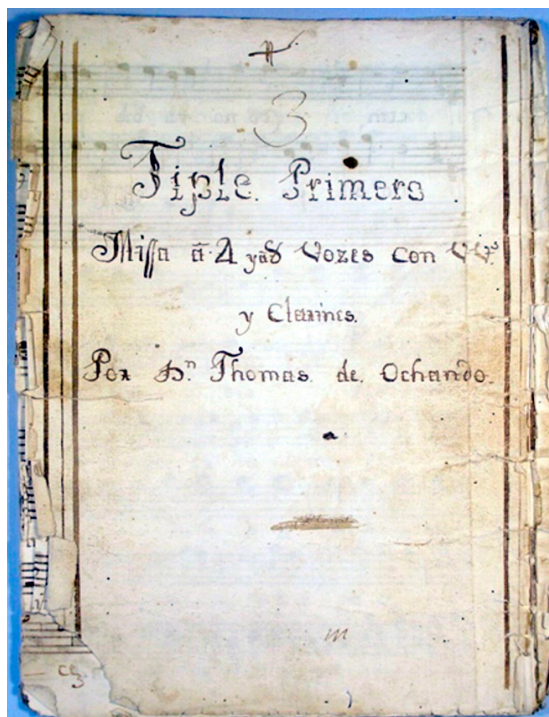 3
Tiple. Primero.
Missa â 4 y a 8 Vozes con VV.ˢ
y Clarines.
Por D.ⁿ Thomas. de. Ochando.